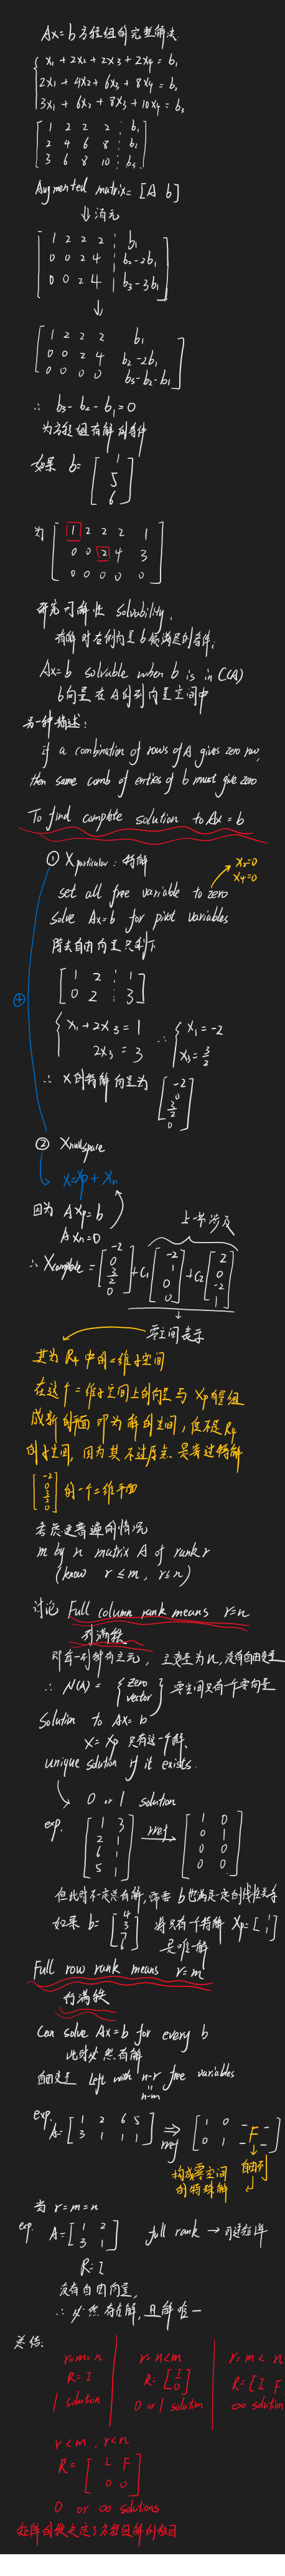 Ax=b 方程组的完整解法
x₁ + 2x₂ + 2x₃ + 2x₄ = b₁
2x₁ + 4x₂ + 6x₃ + 8x₄ = b₂
3x₁ + 6x₂ + 8x₃ + 10x₄ = b₃
1 2 2 2 b₁
2 4 6 8 b₂
3 6 8 10 b₃
Augmented matrix = [A b]
↓消元
1 2 2 2 b₁
0 0 2 4 b₂-2b₁
0 0 2 4 b₃-3b₁
↓
1 2 2 2 b₁
0 0 2 4 b₂-2b₁
0 0 0 0 b₃-b₂-b₁
∴ b₃-b₂-b₁=0
为方程组有解的条件
如果 b= [1 5 6]
为 1 2 2 2 1
0 0 2 4 3
0 0 0 0 0
研究可解性 solvability,
有解时右侧向量b须满足的条件;
Ax=b solvable when b is in C(A)
b向量在A的列向量空间中
另一种描述:
if a combination of rows of A gives zero row,
then same comb of entries of b must give zero
To find complete solution to Ax=b
① Xparticular: 特解
x₂=0
x₄=0
set all free variable to zero
solve Ax=b for pivot variables
除去自由向量只剩下
1 2 1
0 2 3
x₁+2x₃=1
2x₃=3
∴ x₁=-2
x₃=3/2
∴ x的特解向量为 [-2 0 3/2 0]
② Xnullspace
x=xp+xn
因为 Axp=b
Axn=0
上一节涉及
∴ Xcomplete = [-2 0 3/2 0] +C₁ [-2 1 0 0] +C₂ [2 0 -2 1]
零空间表示
其为R₄中的二维子空间
在这个二维子空间上的向量与Xp向量组
成新的平面即为解的空间, 但不是R₄
的子空间, 因为其不过原点 是穿过特解
[-2 0 3/2 0] 的一个二维平面
考虑更普遍的情况
m by n matrix A of rank r
(know r≤m, r≤n)
讨论 Full column rank means r=n
列满秩
即每一列都有主元, 主变量为n,没有自由变量
∴ N(A) = {zero vector} 零空间只有一个零向量
Solution to Ax=b
x=xp 只有这一个解、
unique solution if it exists.
0 or 1 solution
exp.
1 3
2 1
6 1
5 1
rref
1 0
0 1
0 0
0 0
如果 b= [4 3 7 6] 将只有一个特解 Xp=[1 1]
是唯一解
Full row rank means r=m
行满秩
Can solve Ax=b for every b
此时必然有解
自由变量 left with n-r free variables
n-m
exp.
A= 1 2 6 5
3 1 1 1
⇒ rref
1 0 F
0 1
构成零空间
的特殊解
自由列
当 r=m=n
exp. A= [1 2 3 1] full rank → 可逆矩阵
R=I
没有自由向量,
∴ 必然存在解, 且解唯一
总结:
r=m=n
R=I
1 solution
r=n<m
R=[I 0]
0 or 1 solution
r=m<n
R=[I F
∞ solution
r<m, r<n
R= I F
0 0
0 or ∞ solutions
矩阵的秩决定了方程组解的数目